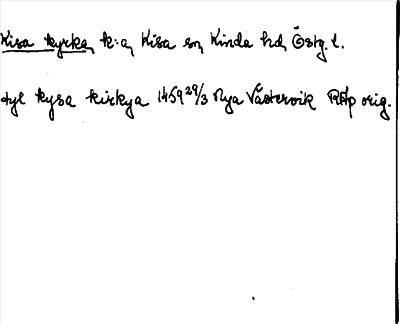 Kisa kyrka, k:a, Kisa sn, Kinda hd, Östg. l.
tyl kysa kirkya 1459 29/3 Nya Västervik RAp orig.